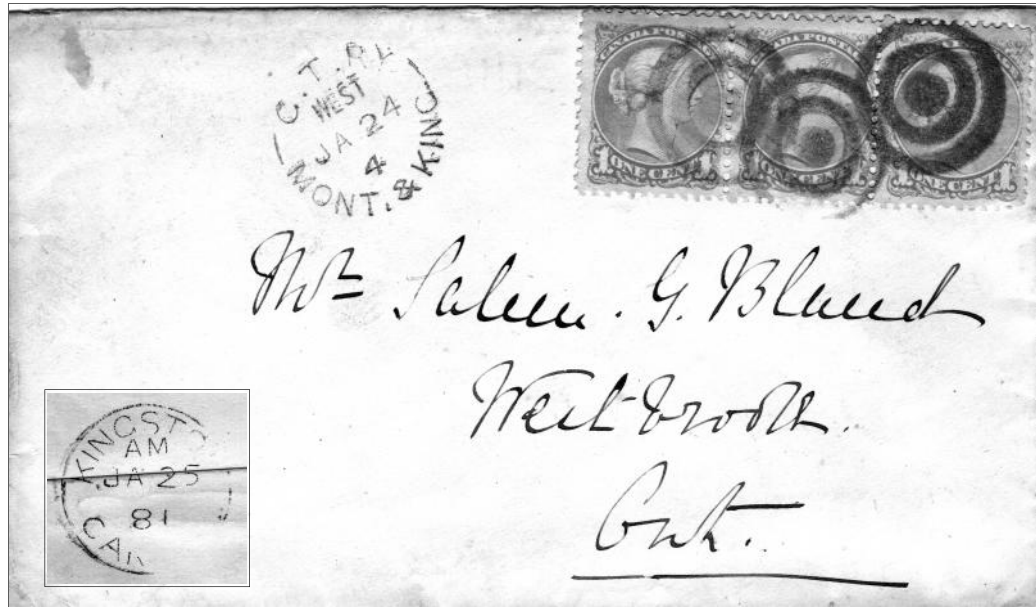 G. T. R.
WEST
JA 24
4
MONT. & KING
CANADA POSTAGE
ONE CENT
CANADA POSTA
ONE CENT
ONE CENT
Mr Salem. G. Bland
Westbrook.
Ont.
KINGSTO
AM
JA 25
81
CAN